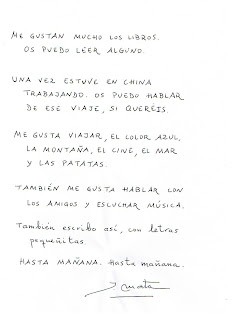 ME GUSTAN MUCHO LOS LIBROS.
OS PUEDO LEER ALGUNO.
UNA VEZ ESTUVE EN CHINA
TRABAJANDO. OS PUEDO HABLAR
DE ESE VIAJE, SI QUERÉIS.
ME GUSTA VIAJAR, EL COLOR AZUL,
LA MONTAÑA, EL CINE, EL MAR
Y LAS PATATAS.
TAMBIÉN ME GUSTA HABLAR CON
LOS AMIGOS Y ESCUCHAR MÚSICA.
También escribo así, con letras
pequeñitas.
HASTA MAÑANA. Hasta mañana.